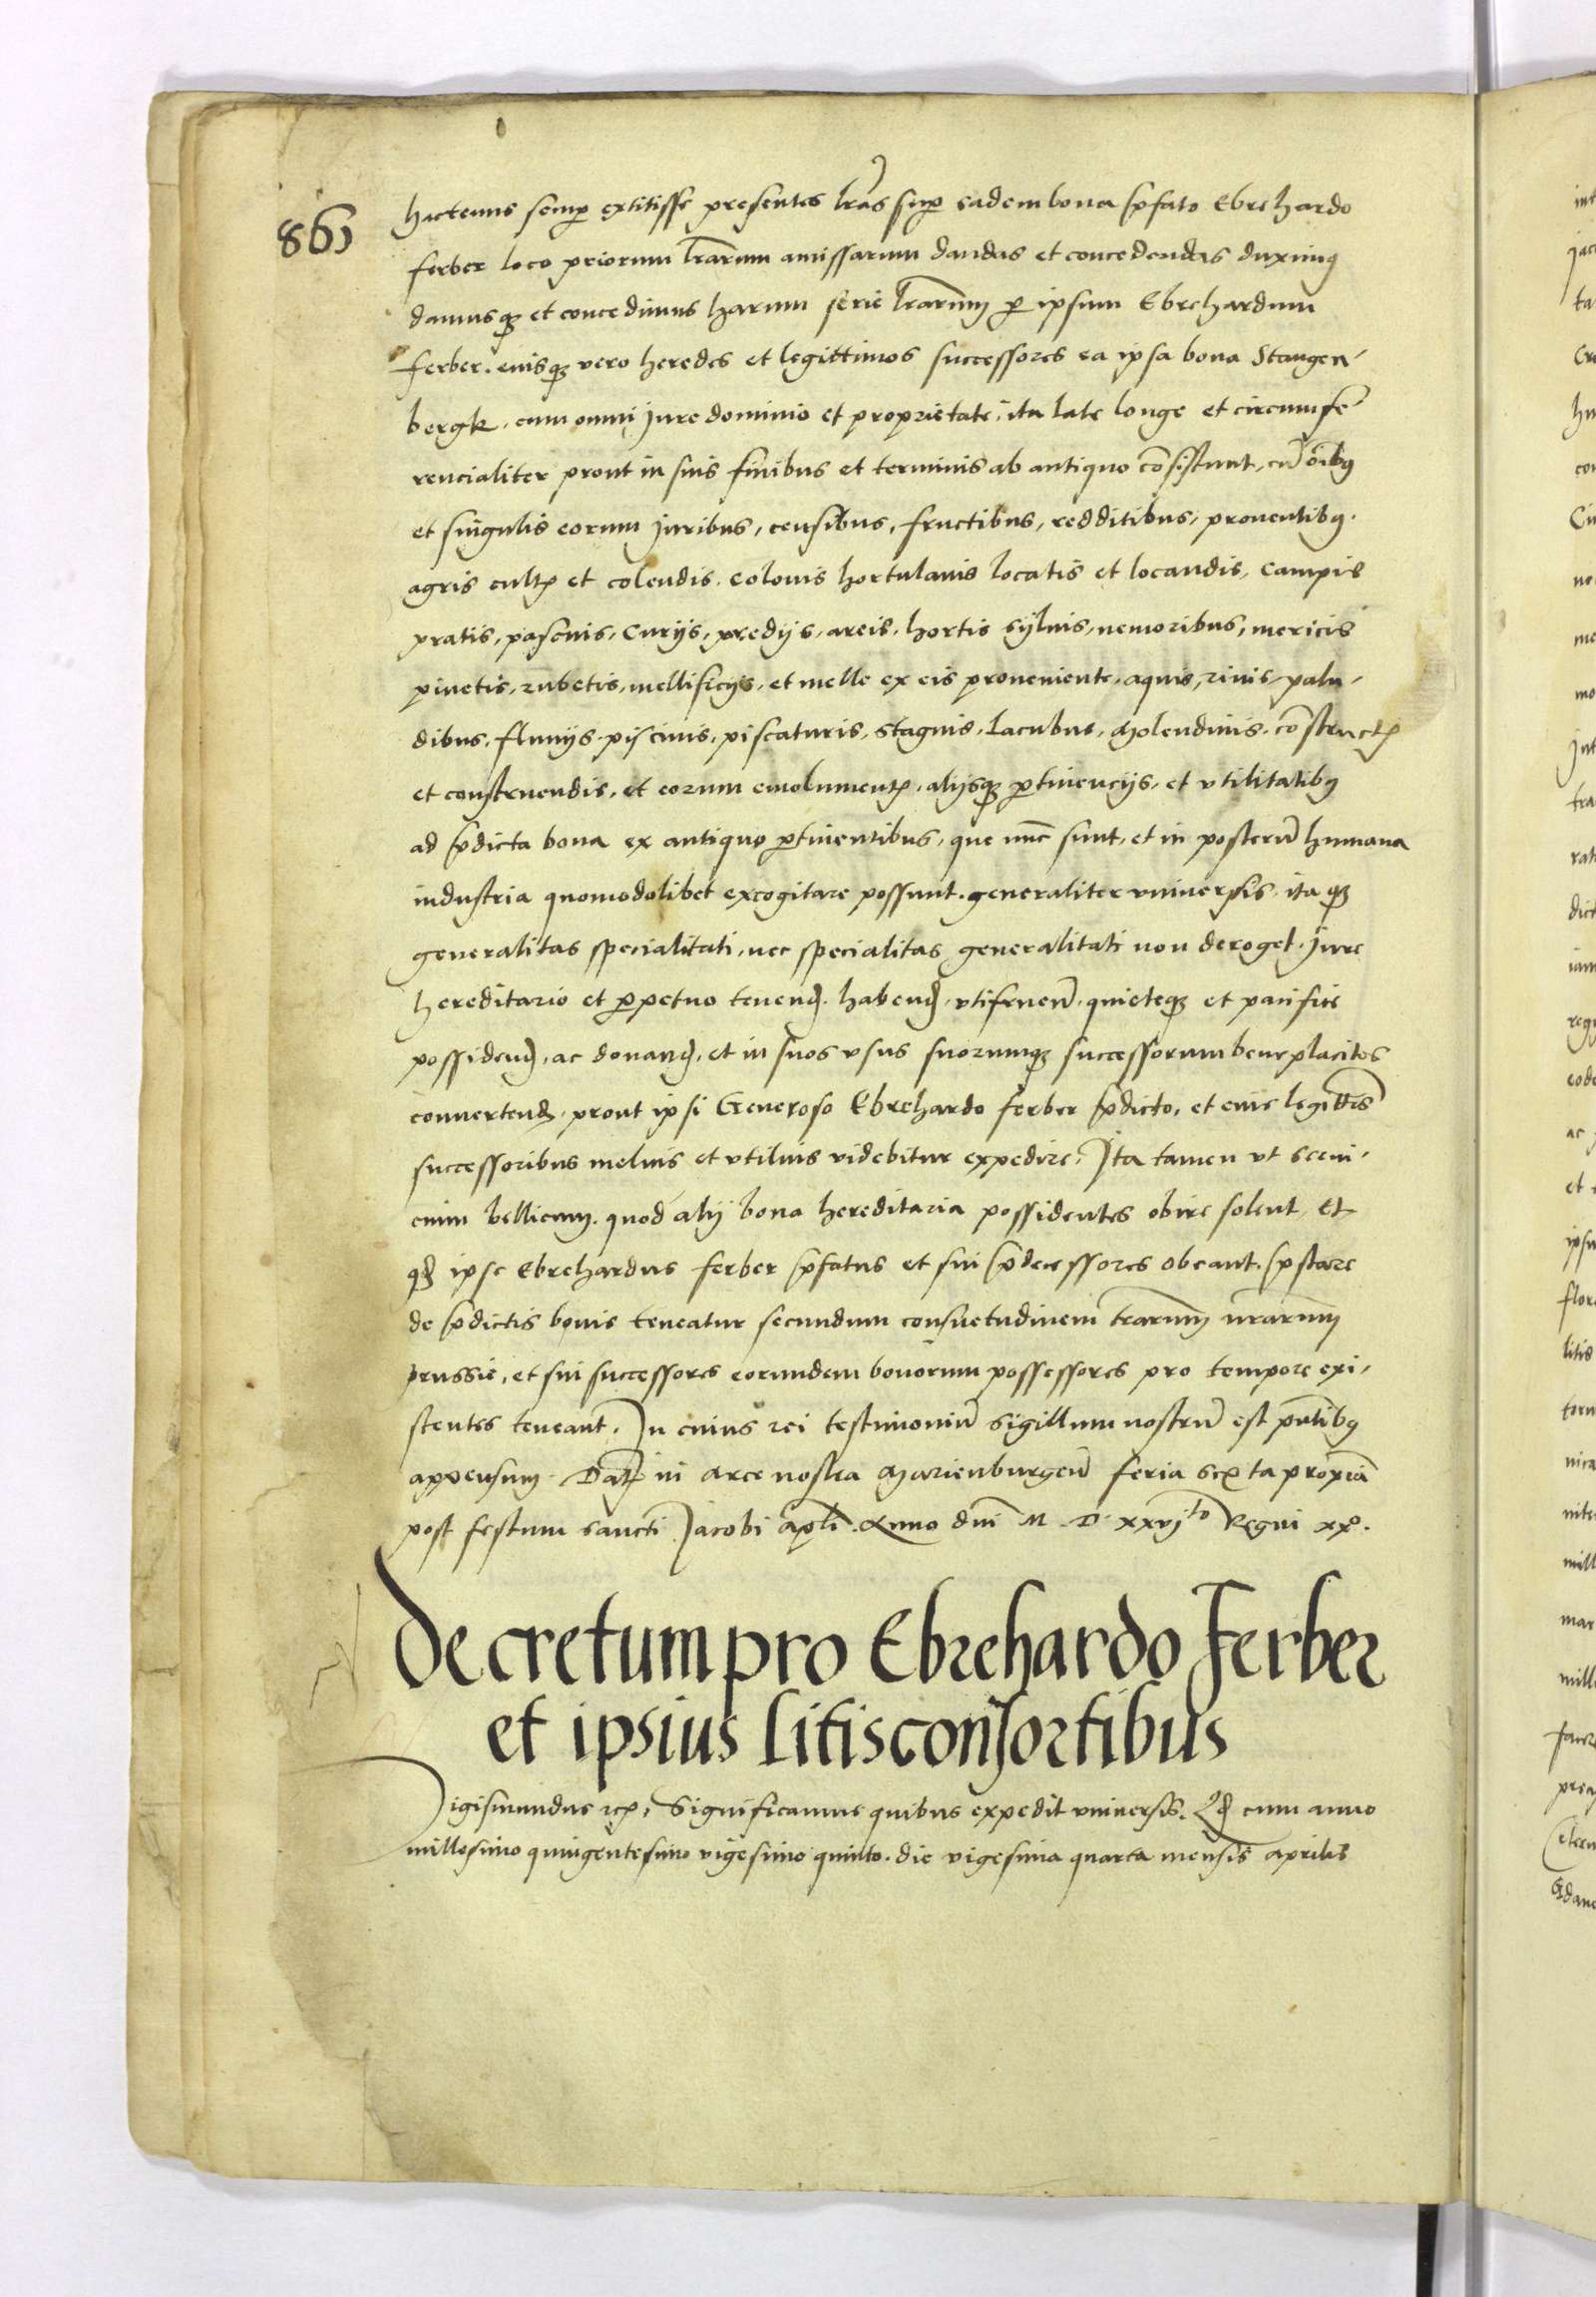 863
hactenus semp extitisse presentes lras sup eadem bona pfato Ebrehardo
ferber loco priorum lrarum amissarum dandas et concedendas duximus
damusq et concedimus harum serie lrarum p ipsum Ebrehardum
ferber. eiusq vero heredes et legittimos successores ea ipsa bona Stangen-
bergk. cum omni jure dominio et proprietate, ita late longe et circumfe
rencialiter prout in suis finibus et terminis ab antiquo cosistunt, cu oibus
et singulis eorum juribus, censibus, fructibus, redditibus, prouentibus.
agris cultis et colendis. colonis hortulanis locatis et locandis, campis
pratis, pascuis, curijs, predijs, areis, hortis sijluis, nemoribus, mericis
pinetis, rubetis, mellificijs, et melle ex eis proueniente, aquis, riuis, palu-
dibus, fluuijs, piscinis, piscaturis, stagnis, lacubus, Molendinis, costructis
et construendis, et eorum emolumentis. alijsq ptinencijs, et vtilitatibus
ad pdicta bona ex antiquo ptinentibus, que nuc sunt, et in posteru humana
industria quomodolibet excogitare possunt. generaliter vniuersis. ita q
generalitas specialitati, nec specialitas generalitati non deroget. jure
hereditario et ppetuo tenend. habend. vtifruen. quieteq et pacifice
possidend, ac donand, et in suos vsus suorumq successorum beneplacitos
conuertend. prout ipsi Generoso Ebrehardo ferber pdicto, et eius legittis
successoribus melius et vtilius videbitur expedire, Ita tamen vt serui-
cium bellicum. quod alij bona hereditaria possidentes obire solent, Et
qd ipse Ebrehardus ferber pfatus et sui pdecessores obeant. pstare
de pdictis bonis teneatur secundum consuetudinem trarum nrarum
prussie, et sui successores eorundem bonorum possessores pro tempore exi-
stentes teneant. In cuius rei testimoniu sigillum nostru est pntibus
appensum. Dat in arce nostra Marienburgen feria sexta proxia
post festum sancti Jacobi apli. Anno dni M. D. xxvjto Regni xxo.
Decretum pro Ebrehardo Ferber
et ipsius litisconsortibus
Sigismundus etc, Significamus quibus expedit vniuersis. Qd cum anno
millesimo quingentesimo vigesimo quinto. die vigesima quarta mensis aprilis